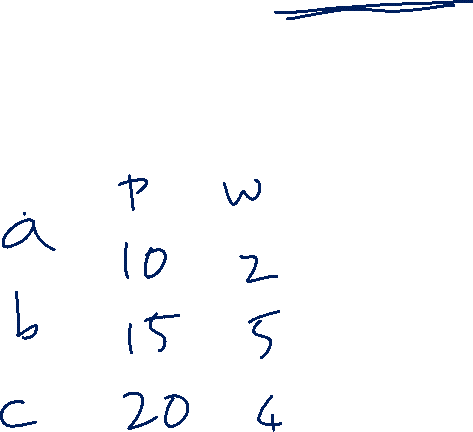 p w
a 10 2
b 15 5
c 20 4